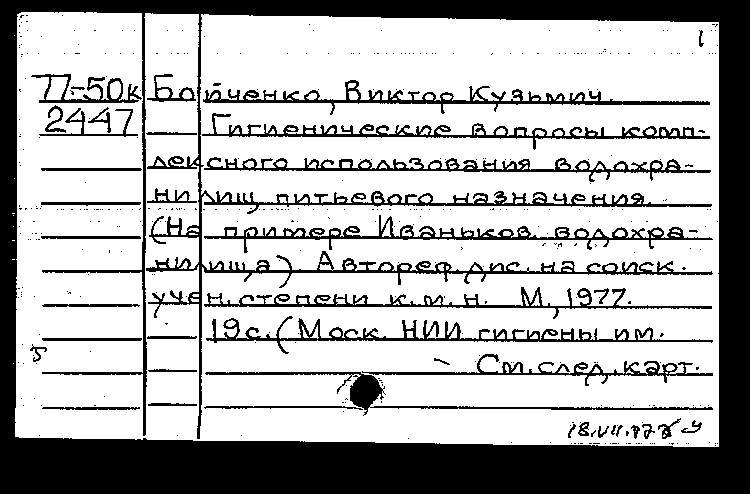 1
77-50к Бойченко, Виктор Кузьмич.
2447 Гигиенические вопросы комп-
лексного использования водохра-
нилищ питьевого назначения.
(На примере Иваньков. водохра-
нилища) Автореф. дис. на соиск.
учен. степени к. м. н. М., 1977.
19с. (Моск. НИИ гигиены им.
5
См. след. карт.
18.VII.77